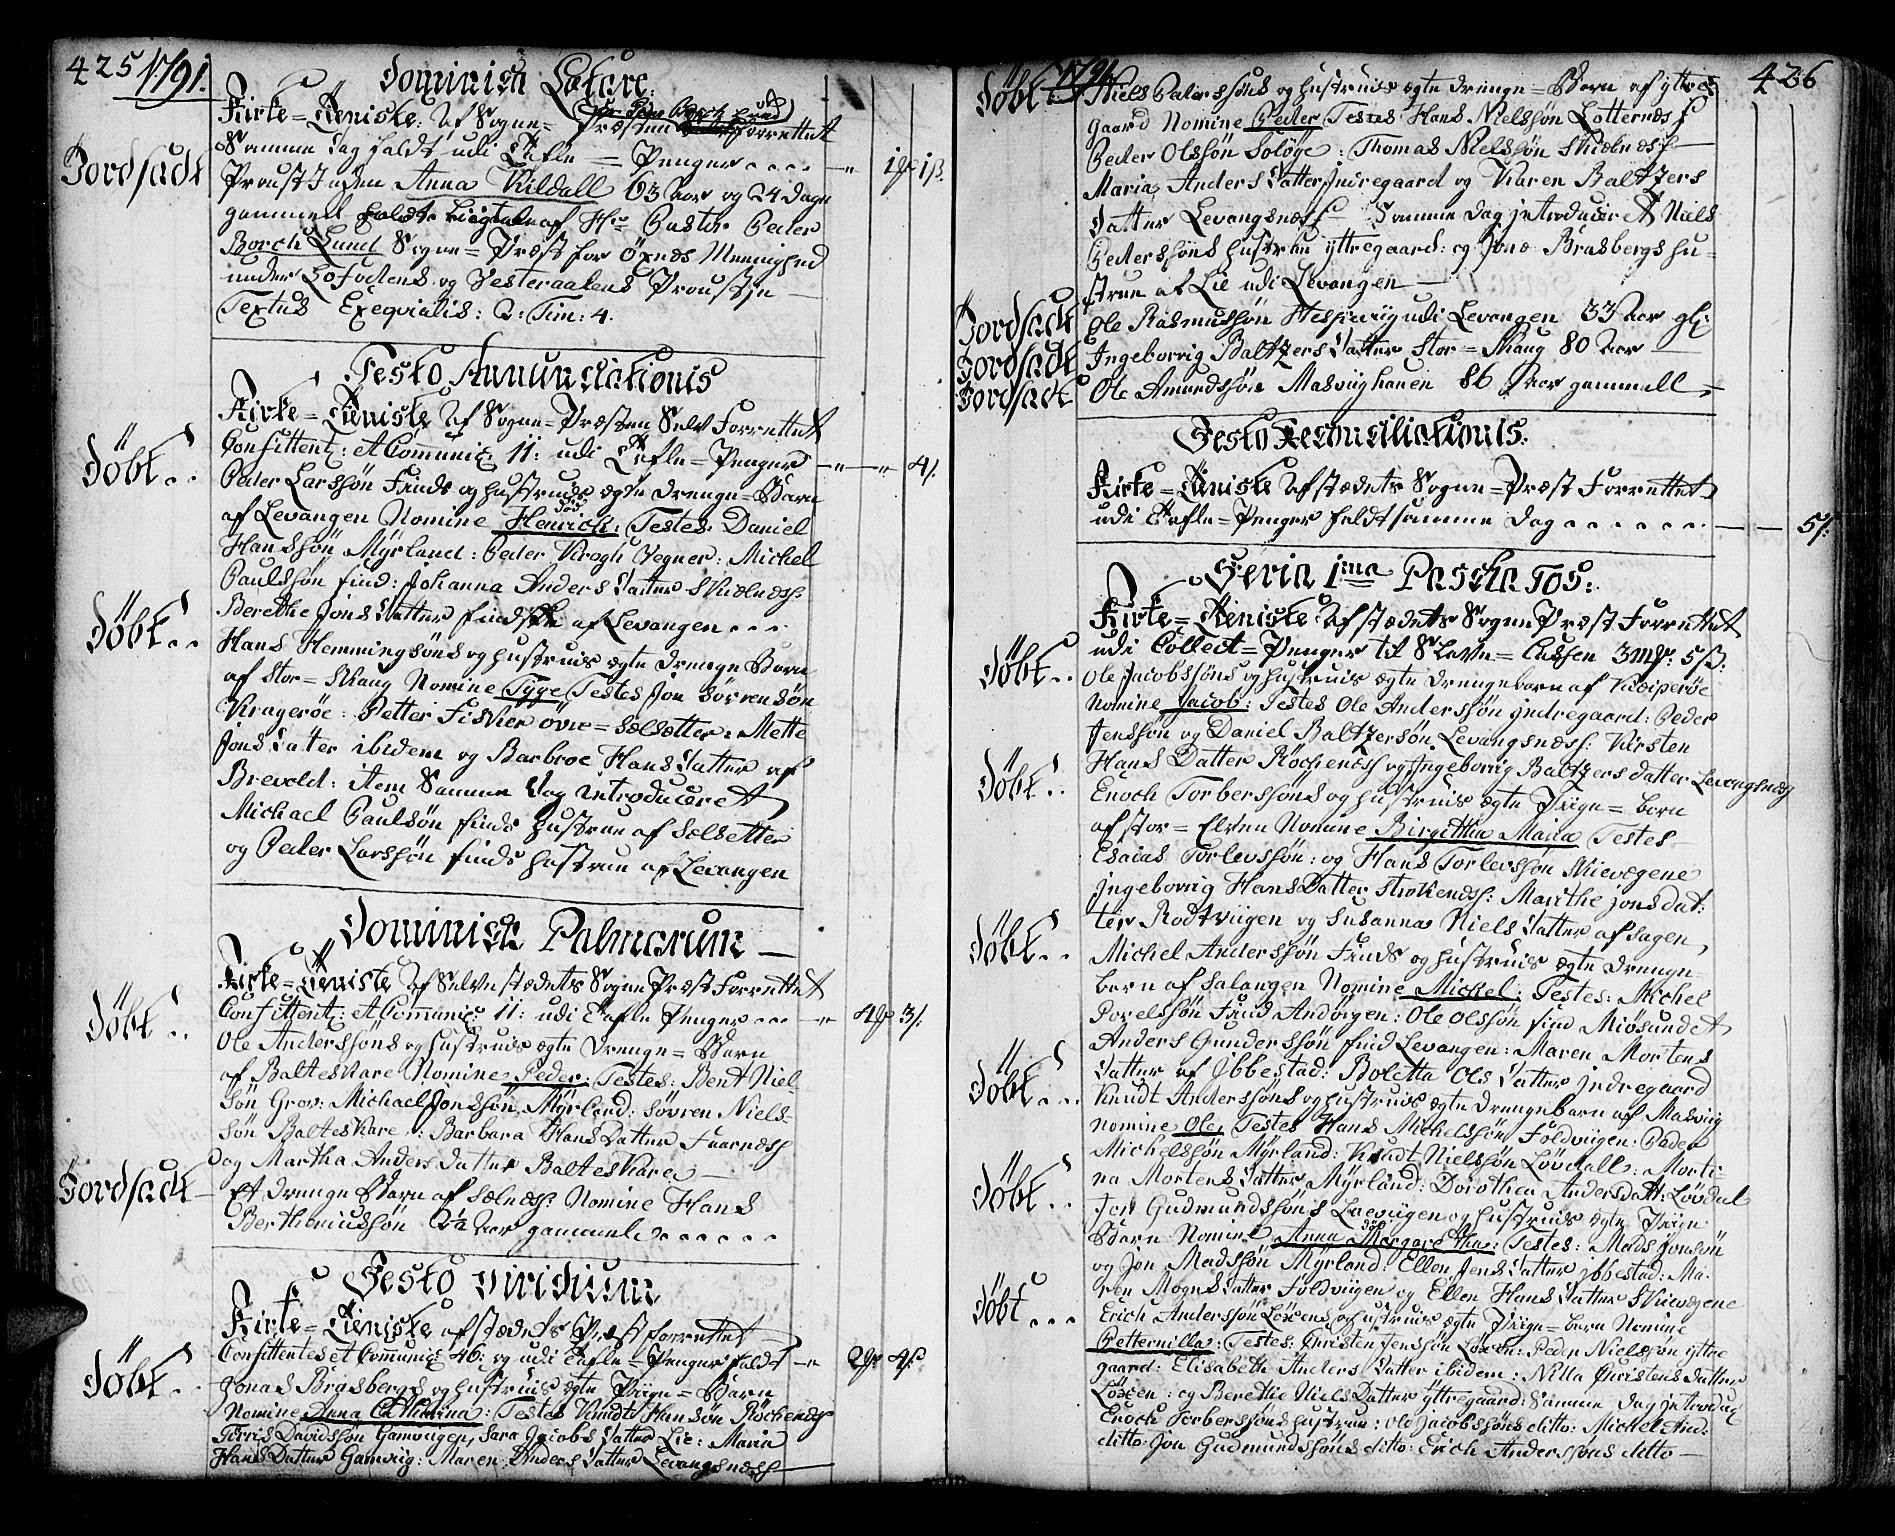 425 1791.
Dominica Lætare.
Kirke=Tieniste: Af Sogne=Præsten Hr Peder Borch Lund Forrettet
Samme dag faldt udi Tafle=Penger .... 1 1ß.
Jordfæst Proustinden Anna Kildall 63 Aar og 24 Dage
gammel holdt Liigtale af Hr Pastor Peder
Borch Lund Sogne=Præst for Öxnes Menighed
under Lofodens og Vesteraalens Proustie
Textus Exeqvialis: 2: Tim: 4.
Festo Annunciationis
Kirke=Tieniste Af Sogne=Præsten Selv Forrettet
Confittent: et Communic: 11: udi Tafle=Penger 4/.
Döbt.. Peder Larssön Finds og hustruis ægte Drenge=Barn
af Levangen Nomine Henrich: Testes: Daniel
död
Hanssön Myrland: Peder Krogh Vegner: Michel
Paulssön find: Johanna Anders Datter Skielnæs:
Berethe Jons Datter findske af Levangen...
Döbt.. Hans Hemmingsöns og hustruis ægte Drenge Barn
af Stor=Skaug Nomine Tyge Testes Jon Sörrensön
Krageröe: Petter Fischer övre=Sælsætter: Mette
Jons Datter ibidem og Barbroe Hans Datter af
Brevold: item Samme Dag introduceret
Michael Paulsön finds hustrue af Sælsetter
og Peder Larssön finds hustrue af Levangen
Dominica Palmarum
Kirke=Tieniste Af Selve stædets Sogne Præst Forrettet
Confittent: et Communic 11: udi Tafle Penger... 4 3/.
Döbt.. Ole Anderssöns og hustruis ægte Drenge=Barn
af Balteskare Nomine Peder: Testes: Bent Niel-
sön Grov: Michael Jonssön Myrland: Sövren Niels-
sön Balteskare: Barbara Hans Datter Faarnæs
og Martha Anders datter Balteskare
Jordfæst Et Drenge Barn af Sælnæs: Nomine Hans
Berthemiussön 2½ Aar gammel......
Festo viridium
Kirke=Tieniste af stædets Præst forrettet
Confittentes et Communic 46: og udi Tafle=Penger faldt 2 4
Döbt.. Jonas Brasbergs og hustruis ægte Piige=Barn
Nomine Anna Cathrina: Testes Knudt Hansön Röchenæs
Törris Davidssön Gamvigen, Sara Jacobs Datter Lie: Maria
Hans Datter Gamviig: Maren Anders Datter Levangsnæs
1791. 426
Döbt Niels Pederssöns og hustruis ægte Drenge=Barn af yttre
gaard Nomine Peder Testes Hans Nielssön Lotternæs
Peder Olssön Solöye: Thomas Nielssön Skielnæs
Maria Anders Datter Indregaard og Karen Baltzers
datter Levangsnæs Samme Dag introduceret Niels
Pederssöns hustrue yttregaard: og Jonas Brasbergs hu-
strue af Lie udi Levangen
Jordfæst Ole Rasmussön Hesviig udi Levangen 33 Aar gl:
Jordfæst Ingeborrig Baltzers Datter Stor=Skaug 80 Aar
Jordfæst Ole Amundssön Masviighauen 86 Aar gammell
Festo Reconciliationis.
Kirke=Tieniste af stædets Sogne=Præst Forrettet
udi Tafle=Penger faldt samme Dag ....... 5/.
Feria 1ma Paschatos:
Kirke=Tieniste af stædets Sogne Præst Forrettet
udi Collect=Penger til Slave=Cassen 3mk: 5ß:
Döbt.. Ole Jacobssöns og hustruis ægte Drengebarn af Kasperöe
Nomine Jacob: Testes Ole Anderssön indregaard: Peder
Jenssön og Daniel Baltzersön Levangsnæs: Kirsten
Hans Datter Röchenæs og Ingeborrig Baltzers datter Levangsnæs
Döbt.. Enoch Torberssöns og hustruis ægte Piige=barn
af Stor=Elven Nomine Birgittha Maria Testes
Esaias Torlevssön: og Hans Torlevssön Skievegene
Ingeborrig Hans Datter Stokenæs: Marithe Jons dat:
ter Rodtviigen og Susanna Niels Datter af Sagen
Döbt.. Michel Anderssön Finds og hustruis ægte Drenge=
barn af Salangen Nomine Michel: Testes: Michel
Povelssön Find Andörgen: Ole Olssön find Miösundet
Anders Gunderssön find Levangen: Maren Mortens
Datter af Ibbestad: Boletta Ols Datter indregaard
Döbt... Knudt Anderssöns og hustruis ægte Drengebarn af Masviig
nomine Ole, Testes Hans Michelssön Foldviigen: Peder
Michelssön Myrland: Knudt Nielssön Lövdall: Morti-
na Mortens Datter Myrland: Dorothea Andersdatt: Lövdal
Döbt.. Jon Gudmundssöns Laeviigen og hustruis ægte Piige
Barn Nomine Anna Margaretha: Testes: Mads Jonsön
död
og Jon Madssön Myrland: Ellen Jens Datter Ibbestad: Ma-
ren Mogns Datter Foldviigen og Ellen Hans Datter Skievegene
Döbt... Erich Anderssön Löxens og hustruis ægte Piige=barn Nomine
Petternilla: Testes: Christen Jenssön Löxen: Peder Nielssön yttre
gaard: Elisabeth Anders Datter ibidem: Nilla Christens Datter
Löxen: og Berethe Niels Datter yttregaard: Samme Dag introduc
Enoch Torberssöns hustrue: Ole Jacobssöns ditto: Michel And:
ditto: Jon Gudmundssöns ditto: Erich Anderssöns ditto